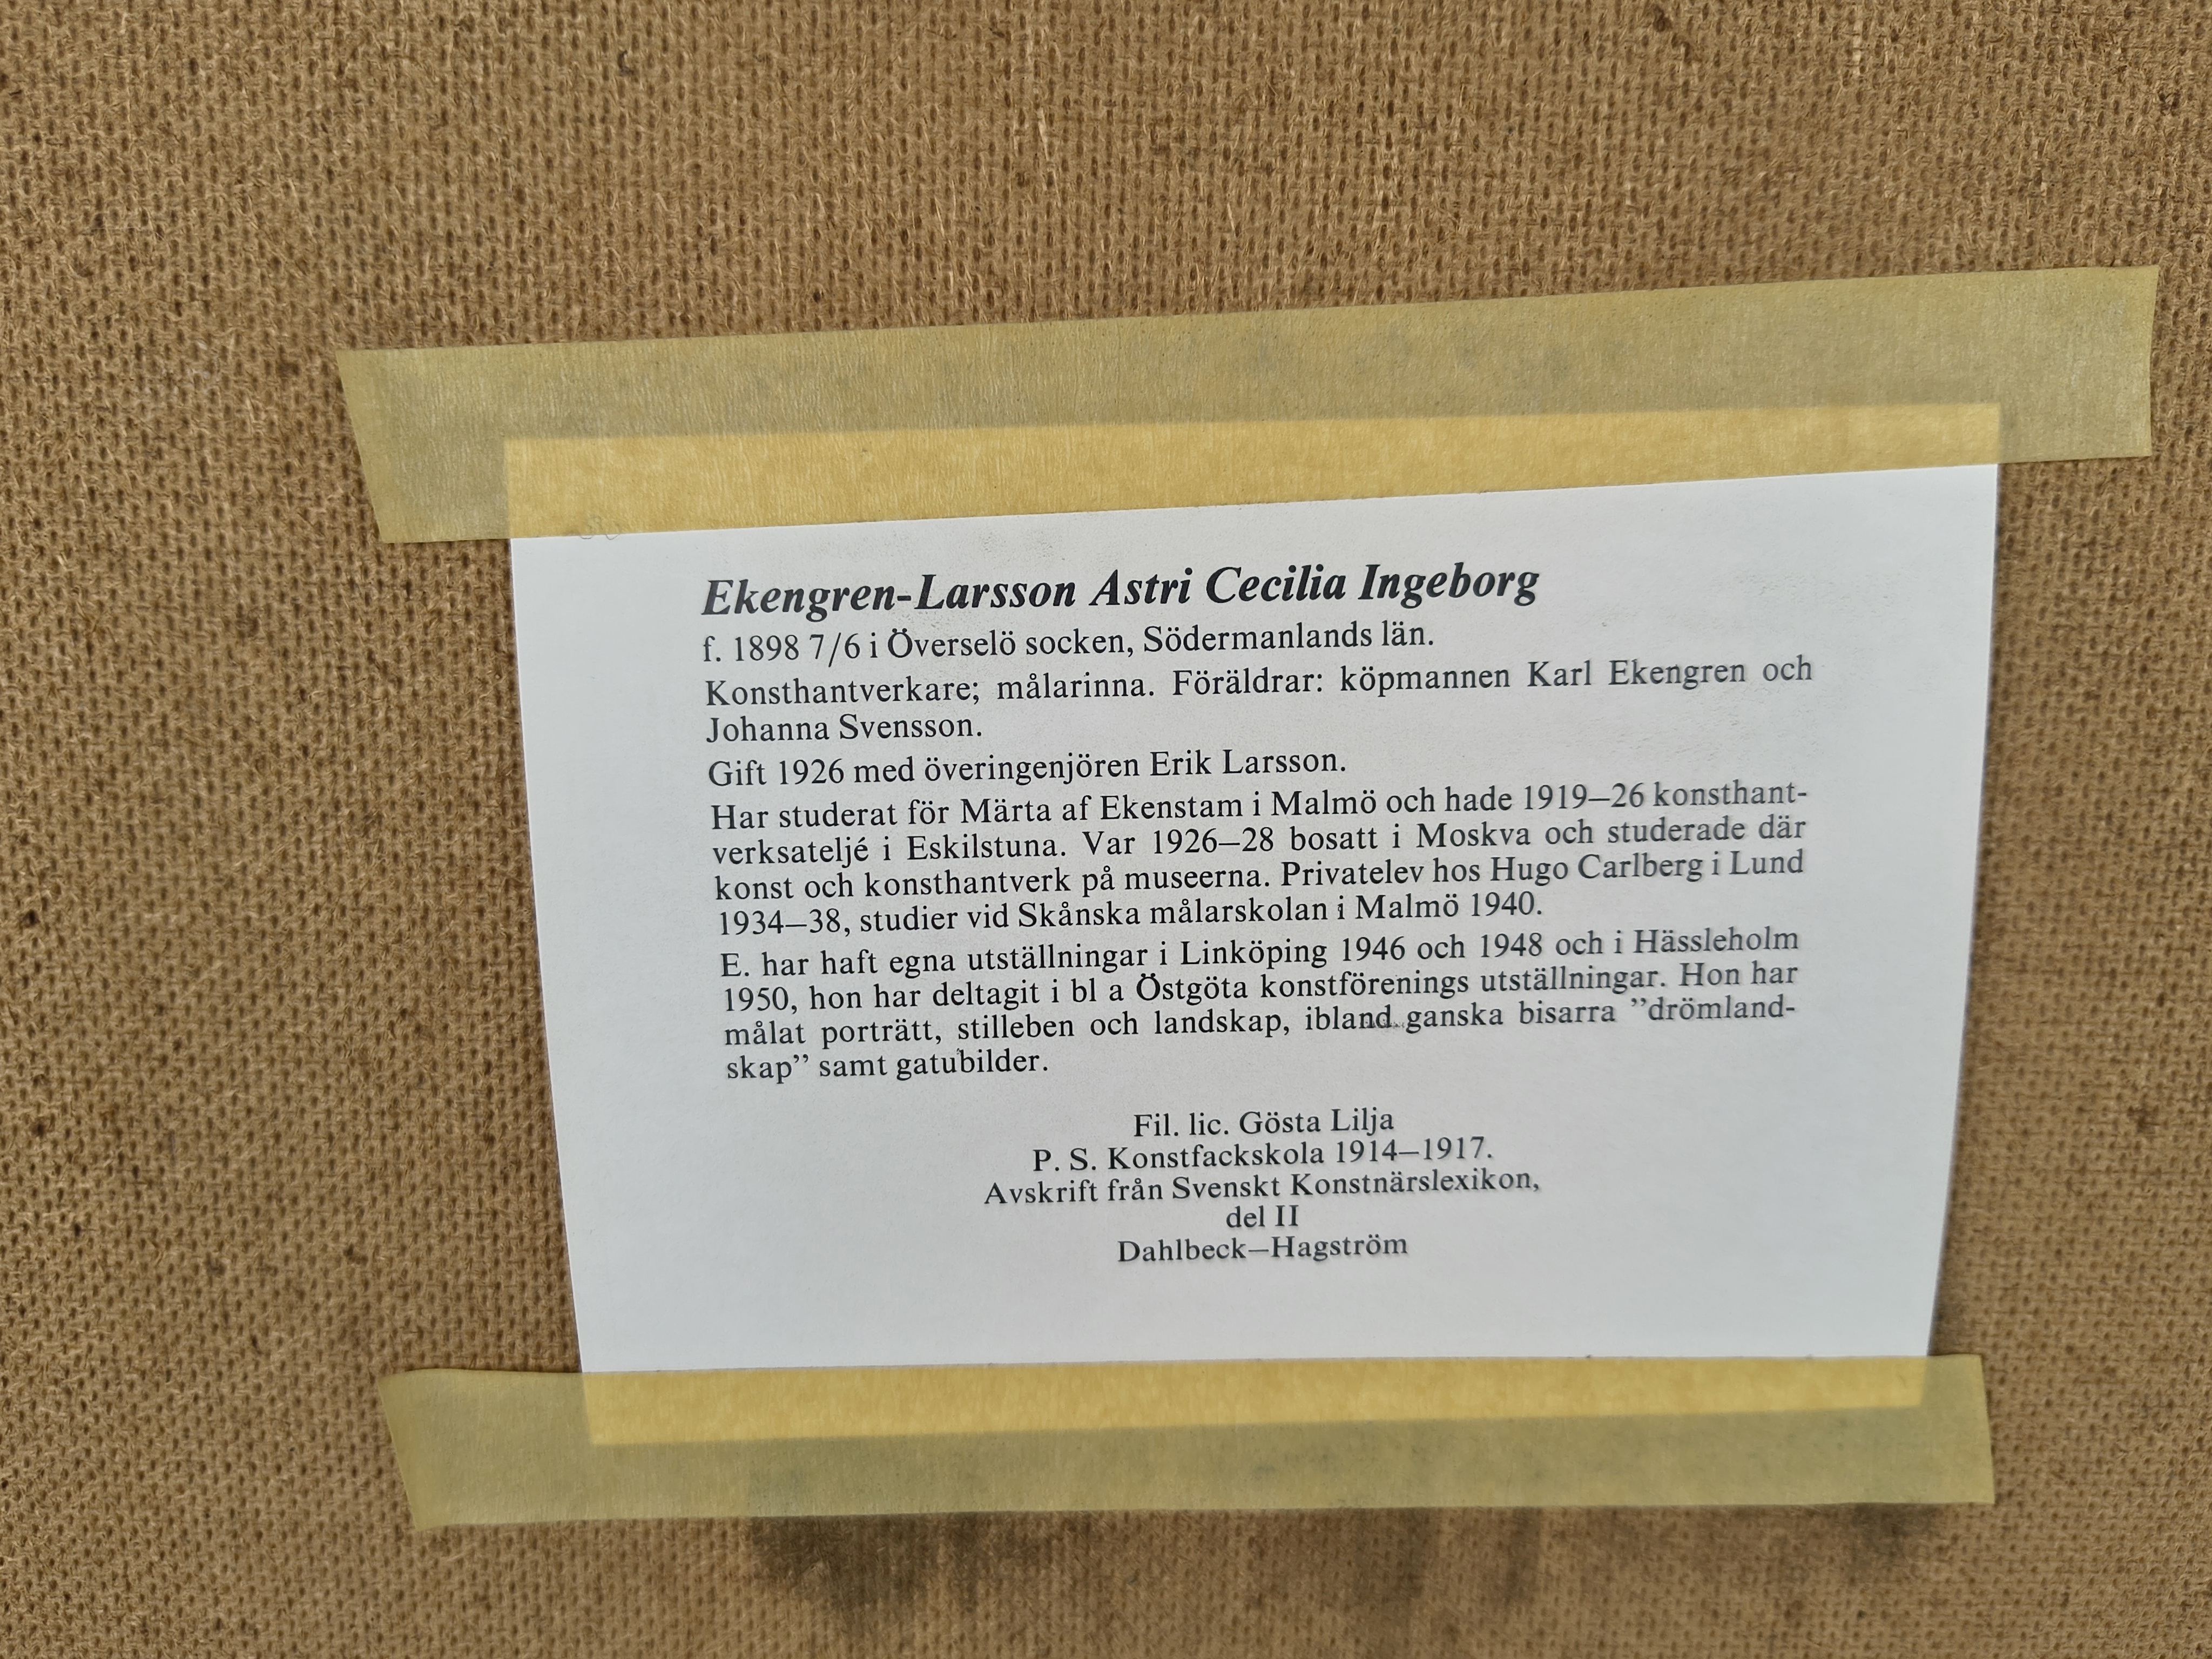 Ekengren-Larsson Astri Cecilia Ingeborg
f. 1898 7/6 i Överselö socken, Södermanlands län.
Konsthantverkare; målarinna. Föräldrar: köpmannen Karl Ekengren och
Johanna Svensson.
Gift 1926 med överingenjören Erik Larsson.
Har studerat för Märta af Ekenstam i Malmö och hade 1919–26 konsthant-
verksateljé i Eskilstuna. Var 1926–28 bosatt i Moskva och studerade där
konst och konsthantverk på museerna. Privatelev hos Hugo Carlberg i Lund
1934–38, studier vid Skånska målarskolan i Malmö 1940.
E. har haft egna utställningar i Linköping 1946 och 1948 och i Hässleholm
1950, hon har deltagit i bl a Östgöta konstförenings utställningar. Hon har
målat porträtt, stilleben och landskap, ibland ganska bisarra ”drömland-
skap” samt gatubilder.
Fil. lic. Gösta Lilja
P. S. Konstfackskola 1914–1917.
Avskrift från Svenskt Konstnärslexikon,
del II
Dahlbeck–Hagström